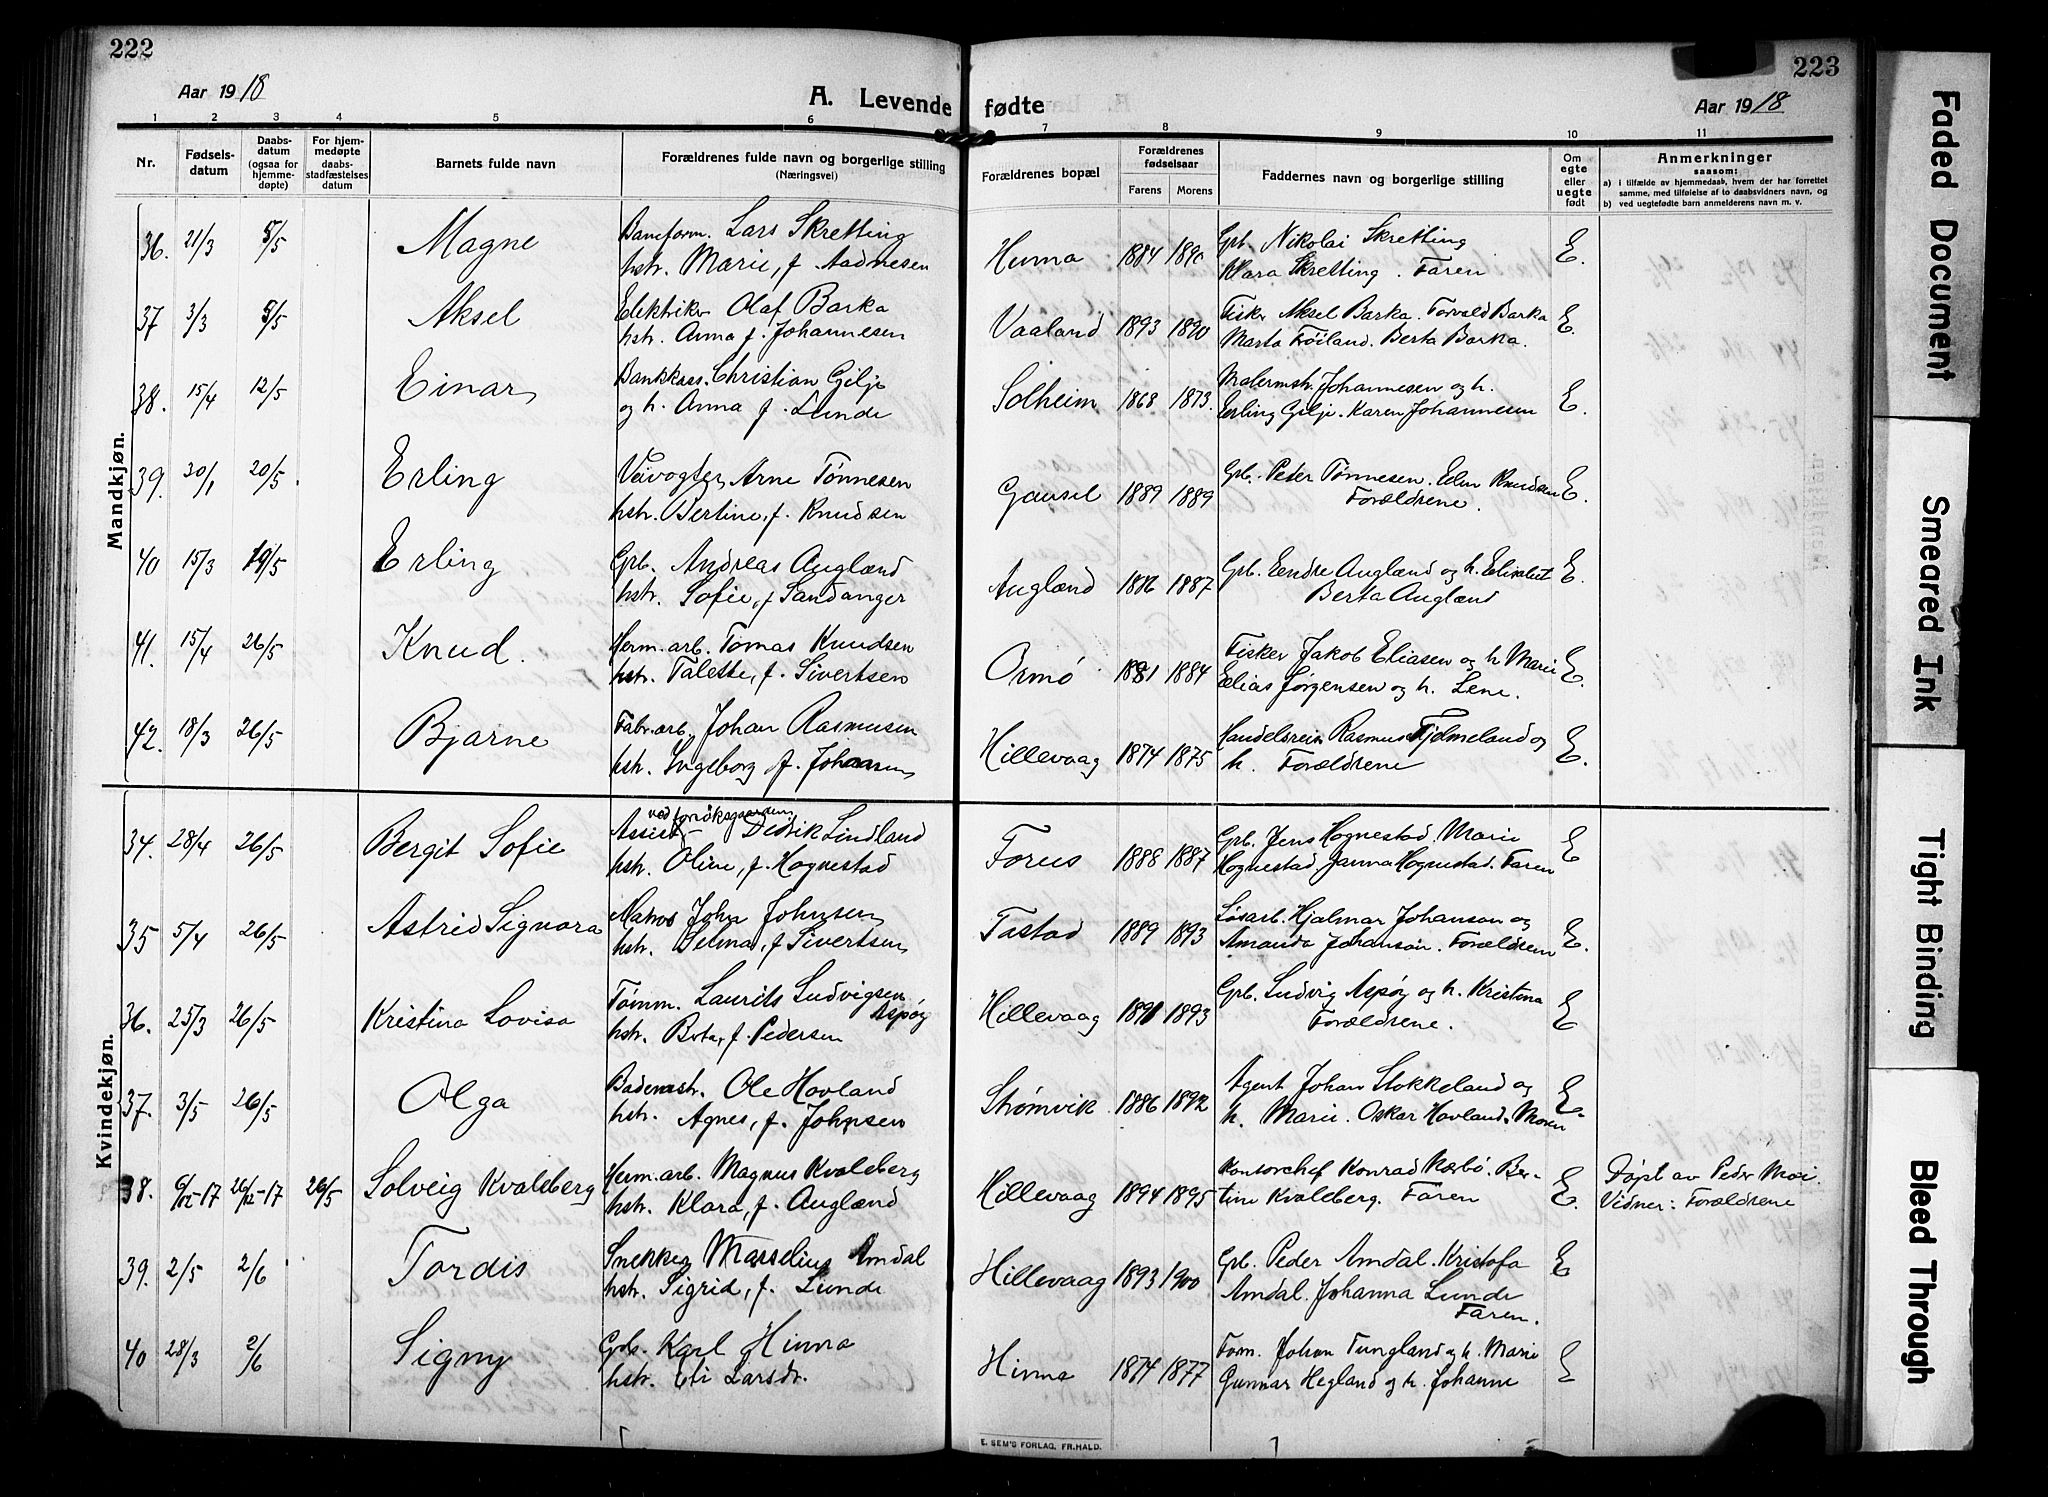 222
Aar 1918
A. Levende
1 2 3 4 5 6
Nr. Fødselsdatum Daabsdatum (ogsaa for hjemmedøpte) For hjemmedøpte daabsstadfæstelses datum Barnets fulde navn Forældrenes fulde navn og borgerlige stilling (Næringsvei)
Mandkjøn.
36. 21/3 5/5 Magne Baneform. Lars Skretting
hstr. Marie, f. Aadnesen
37 3/3 5/5 Aksel Elektriker Olaf Barka
hstr. Anna f. Johannesen
38. 15/4 12/5 Einar Bankkass. Christian Gilje
og h. Anna f. Lunde
39. 20/1 20/5 Erling Veivogter Arne Tønnesen
hstr. Bertine, f. Knudsen
40 15/3 19/5 Erling Grb. Andreas Auglænd
hstr. Sofie, f. Sandanger
41. 15/4 26/5 Knud. Herm. arb. Tomas Knudsen
hstr. Talette, f. Sivertsen
42. 18/3 26/5 Bjarne Fabr. arb. Johan Rasmusen
hstr. Ingeborg f. Johansen
Kvindekjøn.
34. 28/4 26/5 Bergit Sofie Assist. ved forsøksgaarden Didrik Lindland
hstr. Oline, f. Hognestad
35 5/4 26/5 Astrid Signora Matros John Johnsen
hstr. Selma, f. Sivertsen
36. 25/3 26/5 Kristina Lovisa Tømm. Laurits Ludvigsen Aspøy
hstr. Berta, f. Pedersen
37. 3/5 26/5 Olga Bademstr. Ole Hovland
hstr. Agnes, f. Johnsen
38. 6/12-17 26/12-17 26/5 Solveig Kvaleberg Herm. arb. Magnus Kvaleberg
hstr. Klara, f. Auglænd
39. 2/5 2/6 Tordis Snekker Marselius Amdal
hstr. Sigrid, f. Lunde
40 28/3 2/6 Signy Grb. Karl Hinna
hstr. Eli Larsdr.
223
fødte
Aar 1918
7 8 9 10 11
Forældrenes bopæl Forældrenes fødselsaar Farens Morens Faddernes navn og borgerlige stilling Om egte eller uegte født Anmerkninger saasom:
a) i tilfælde av hjemmedaab, hvem der har forrettet samme, med tilføielse af to daabsvidners navn, og
b) ved uegtefødte barn anmelderens navn m. v.
Hinna 1884 1890 Grb. Nikolai Skretting E.
Klara Skretting. Faren
Vaaland 1893 1890 Fisker Aksel Barka. Torvald Barka E.
Marta Föiland. Berta Barka.
Solheim 1868 1873. Malermstr. Johannesen og h. E.
Erling Gilje. Karen Johannesen
Gausel 1889 1889 Grb. Peder Tønnesen. Edin Knudsen E.
Forældrene.
Auglænd 1886 1887 Grb. Endre Auglænd og h. Elisabet E.
Berta Auglænd
Ormø 1881 1884 Fisker Jakob Eliasen og h Marie E.
Elias Jørgensen og h. Lene.
Hillevaag 1874 1875 Handelsreis. Rasmus Fjelmeland og E.
h. Forældrene
Forus 1888 1887 Grb. Jens Hognestad. Marie E
Hognestad. Janna Hognestad. Faren
Tastad 1889 1893 Løsarb. Hjalmar Johanson og E.
Amanda Johanson. Forældrene
Hillevaag 1891 1893 Grb. Ludvig Aspøy og h. Kristina E
Forældrene.
Strømvik 1886 1892 Agent Johan Stokkeland og E.
h. Marie. Oskar Hovland. Moren
Hillevaag 1894 1895 Kontorchef Konrad Nærbø. Ber- E. Døpt av Peder Moi.
tine Kvaleberg. Faren Vidner: Forældrene
Hillevaag 1893 1900 Grb. Peder Amdal. Kristofa E
Amdal. Johanna Lunde
Faren.
Hinna 1874 1877 Form. Johan Tungland og h. Marie E
Gunnar Hegland og h. Johanne
E. SEM'S FORLAG, FR.HALD.
Faded Document
Smeared Ink
Tight Binding
Bleed Through